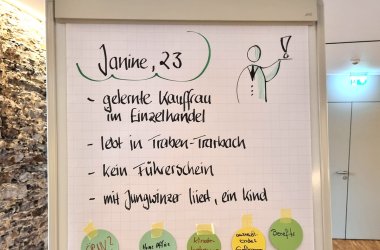 Janine, 23
- gelernte Kauffrau
im Einzelhandel
- lebt in Traben-Trarbach
- kein Führerschein
- mit Jungwinzer liiert, ein Kind
Benefits